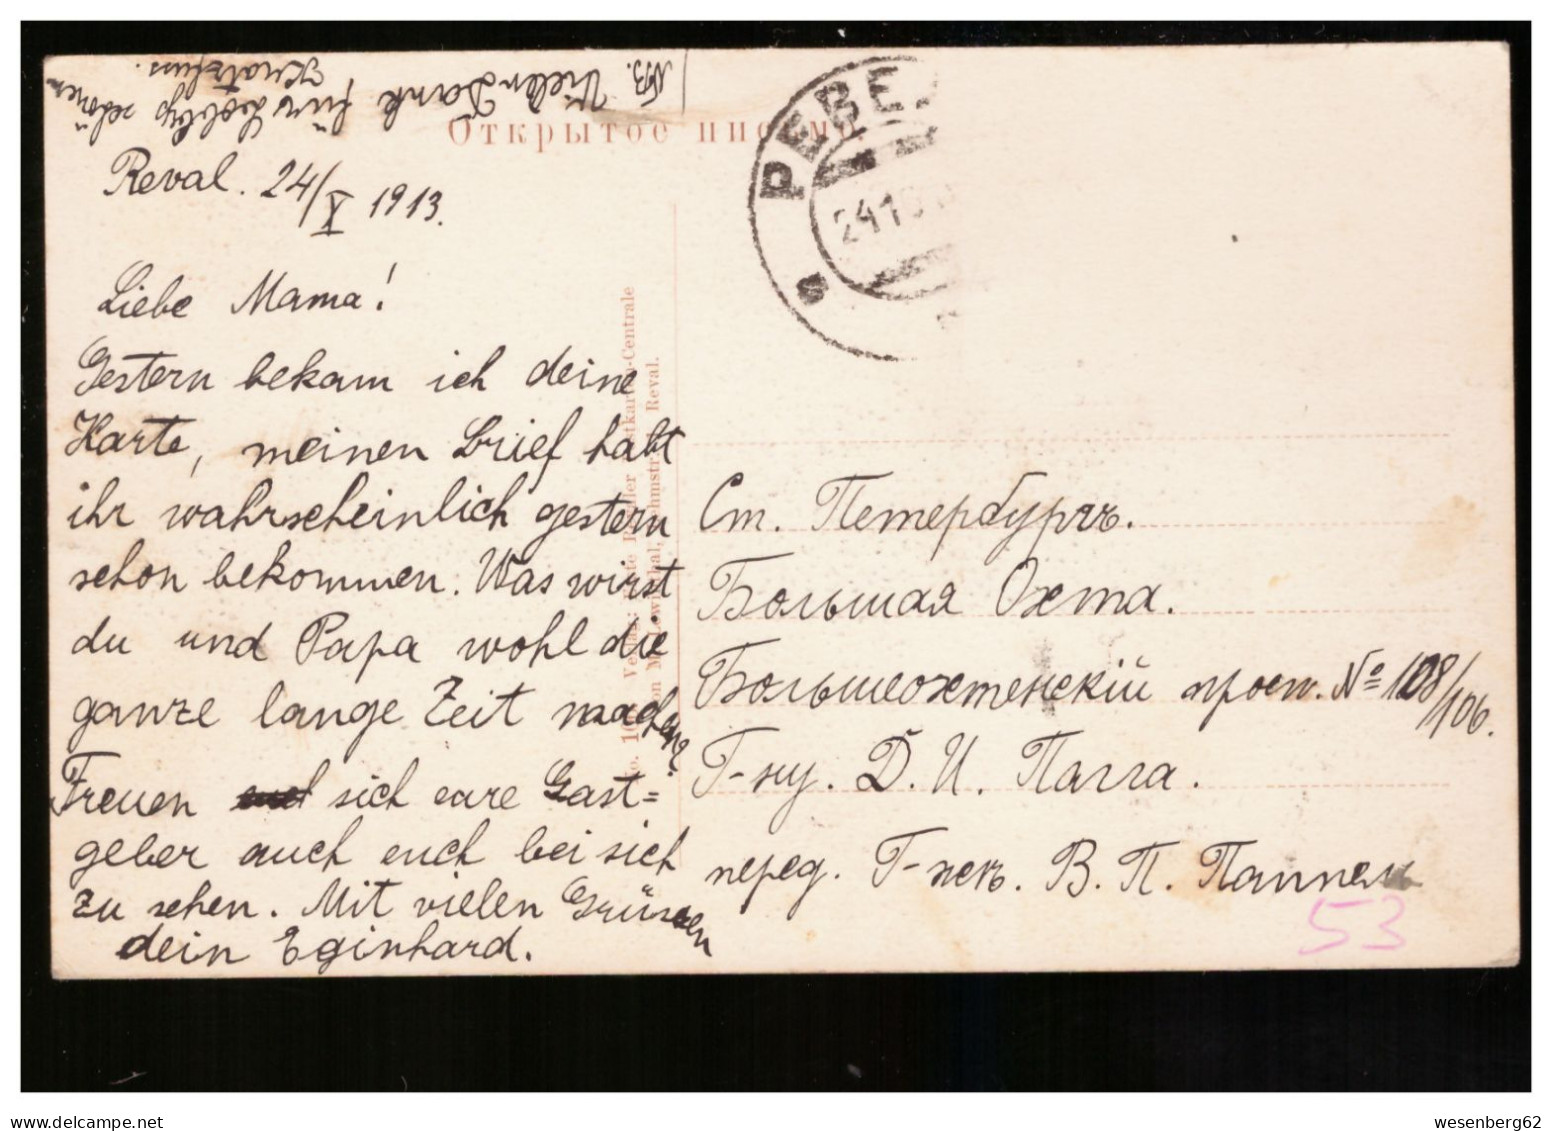 NB. Vielen Dank für Lobbys schönen
Kratzfuss.
Открытое письмо.
РЕВЕ
24 10
Reval. 24/X 1913.
Liebe Mama!
Gestern bekam ich deine
Karte, meinen Brief habt
ihr wahrscheinlich gestern
schon bekommen. Was wirst
du und Papa wohl die
ganze lange Zeit machen?
Freuen sich eure Gast=
geber auch euch bei sich
zu sehen. Mit vielen Grüssen
dein Eginhard.
Verlag: Erste Revaler Postkarten-Centrale
von M. Lowinthal, Lehmstr. Reval.
Ст. Петербургъ.
Большая Охта.
Большеохтенскій просп. № 108/106.
Г-ну. Д. И. Палла.
перед. Г-жѣ. В. П. Паппель
53
wesenberg62